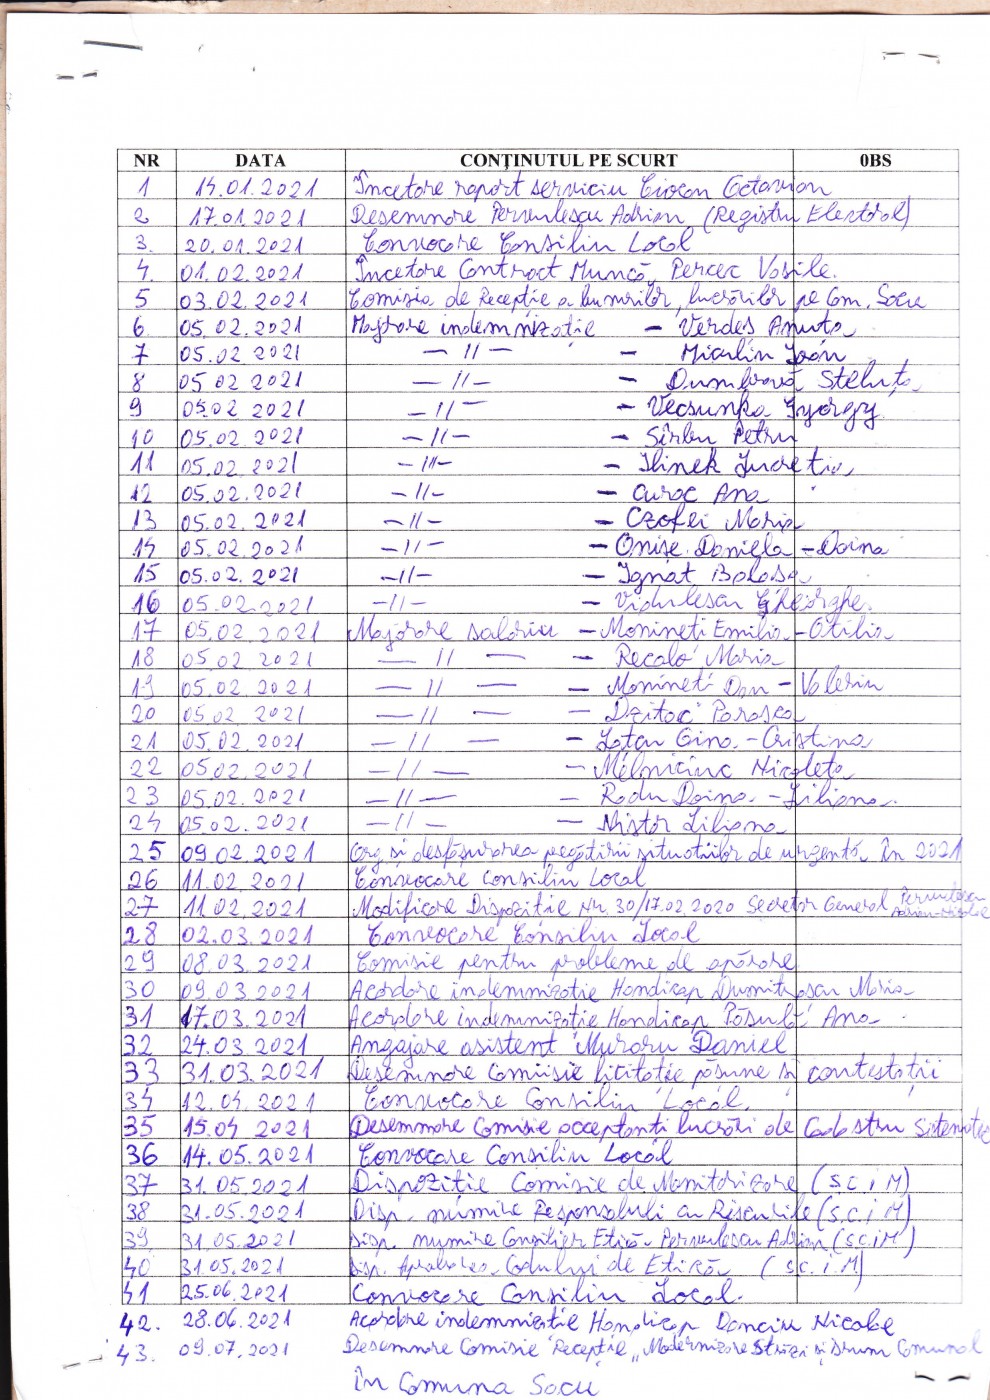 NR DATA CONȚINUTUL PE SCURT 0BS
1 14.01.2021 Încetare raport serviciu Ciocan Octavian
2 17.01.2021 Desemnare Pervulescu Adrian (Registru Electoral)
3. 20.01.2021 Convocare Consiliu Local
4. 01.02.2021 Încetare Contract Muncă Percec Vasile.
5 03.02.2021 Comisia de Recepție a bunurilor, lucrărilor pe Com. Socu
6. 05.02.2021 Majorare indemnizație – Verdes Anuta
7 05.02 2021 – // – – Miculin Ioan
8 05 02 2021 – // – – Dumbravă Steluța
9 05.02 2021 – // – – Vecsunka Gyorgy
10 05.02. 2021 – // – – Sîrbu Petru
11 05.02.2021 – // – – Ilinek Lucreția
12 05.02.2021 – // – – Curac Ana
13 05.02.2021 – // – – Czofei Maria
14 05.02.2021 – // – – Onise Daniela – Doina
15 05.02.2021 – // – – Ignat Balosa
16 05.02.2021 – // – – Vidulescu Gheorghe.
17 05.02.2021 Majorare salariu – Monineti Emilia – Otilia
18 05.02 2021 – // – – Recalo Maria
19 05.02.2021 – // – – Monineti Dan – Valeriu
20 05.02 2021 – // – – Dzitac Parasca
21 05.02.2021 – // – – Lotcu Gina – Cristina
22 05.02.2021 – // – – Melniciuc Nicoleta
23 05.02.2021 – // – – Radu Doina – Liliana.
24 05.02.2021 – // – – Nistor Liliana
25 09.02.2021 Org și desfășurarea pegătirii situatiilor de urgentă în 2021
26 11.02.2021 Convocare Consiliu Local
27 11.02.2021 Modificare Dispozitie Nr. 30/17.02.2020 Secretor General Pervulescu Adrian-Nicolae
28 02.03.2021 Convocare Consiliu Local
29 08.03.2021 Comisie pentru probleme de apărare
30 09.03 2021 Acordare indemnizatie Handicap Dumitrascu Maria
31 17.03.2021 Acordare indemnizatie Handicap Păsulă Ana
32 24.03 2021 Angajare asistent Muraru Daniel
33 31.03.2021 Desemnare Comisie licitatie pășune si contestatii
34 12.04.2021 Convocare Consiliu Local.
35 15.04 2021 Desemnare Comisie acceptanti lucrări de Cadastru Sistematic
36 14.05.2021 Convocare Consiliu Local
37 31.05.2021 Dispoziție Comisie de Monitorizare (S.C.I.M)
38 31.05.2021 Disp. numire Responsabili cu Riscurile (S.C.I.M)
39 31.05.2021 Disp. numire Consilier Etică Pervulescu Adrian (S.C.I.M)
40 31.05.2021 Disp. Aprobarea Codului de Etică (S.C.I.M)
41 25.06.2021 Convocare Consiliu Local.
42. 28.06.2021 Acordare indemnizatie Handicap Danciu Nicolae
43. 09.07.2021 Desemnare Comisie Recepție „Modernizare Străzi și Drum Comunal
în Comuna Socu